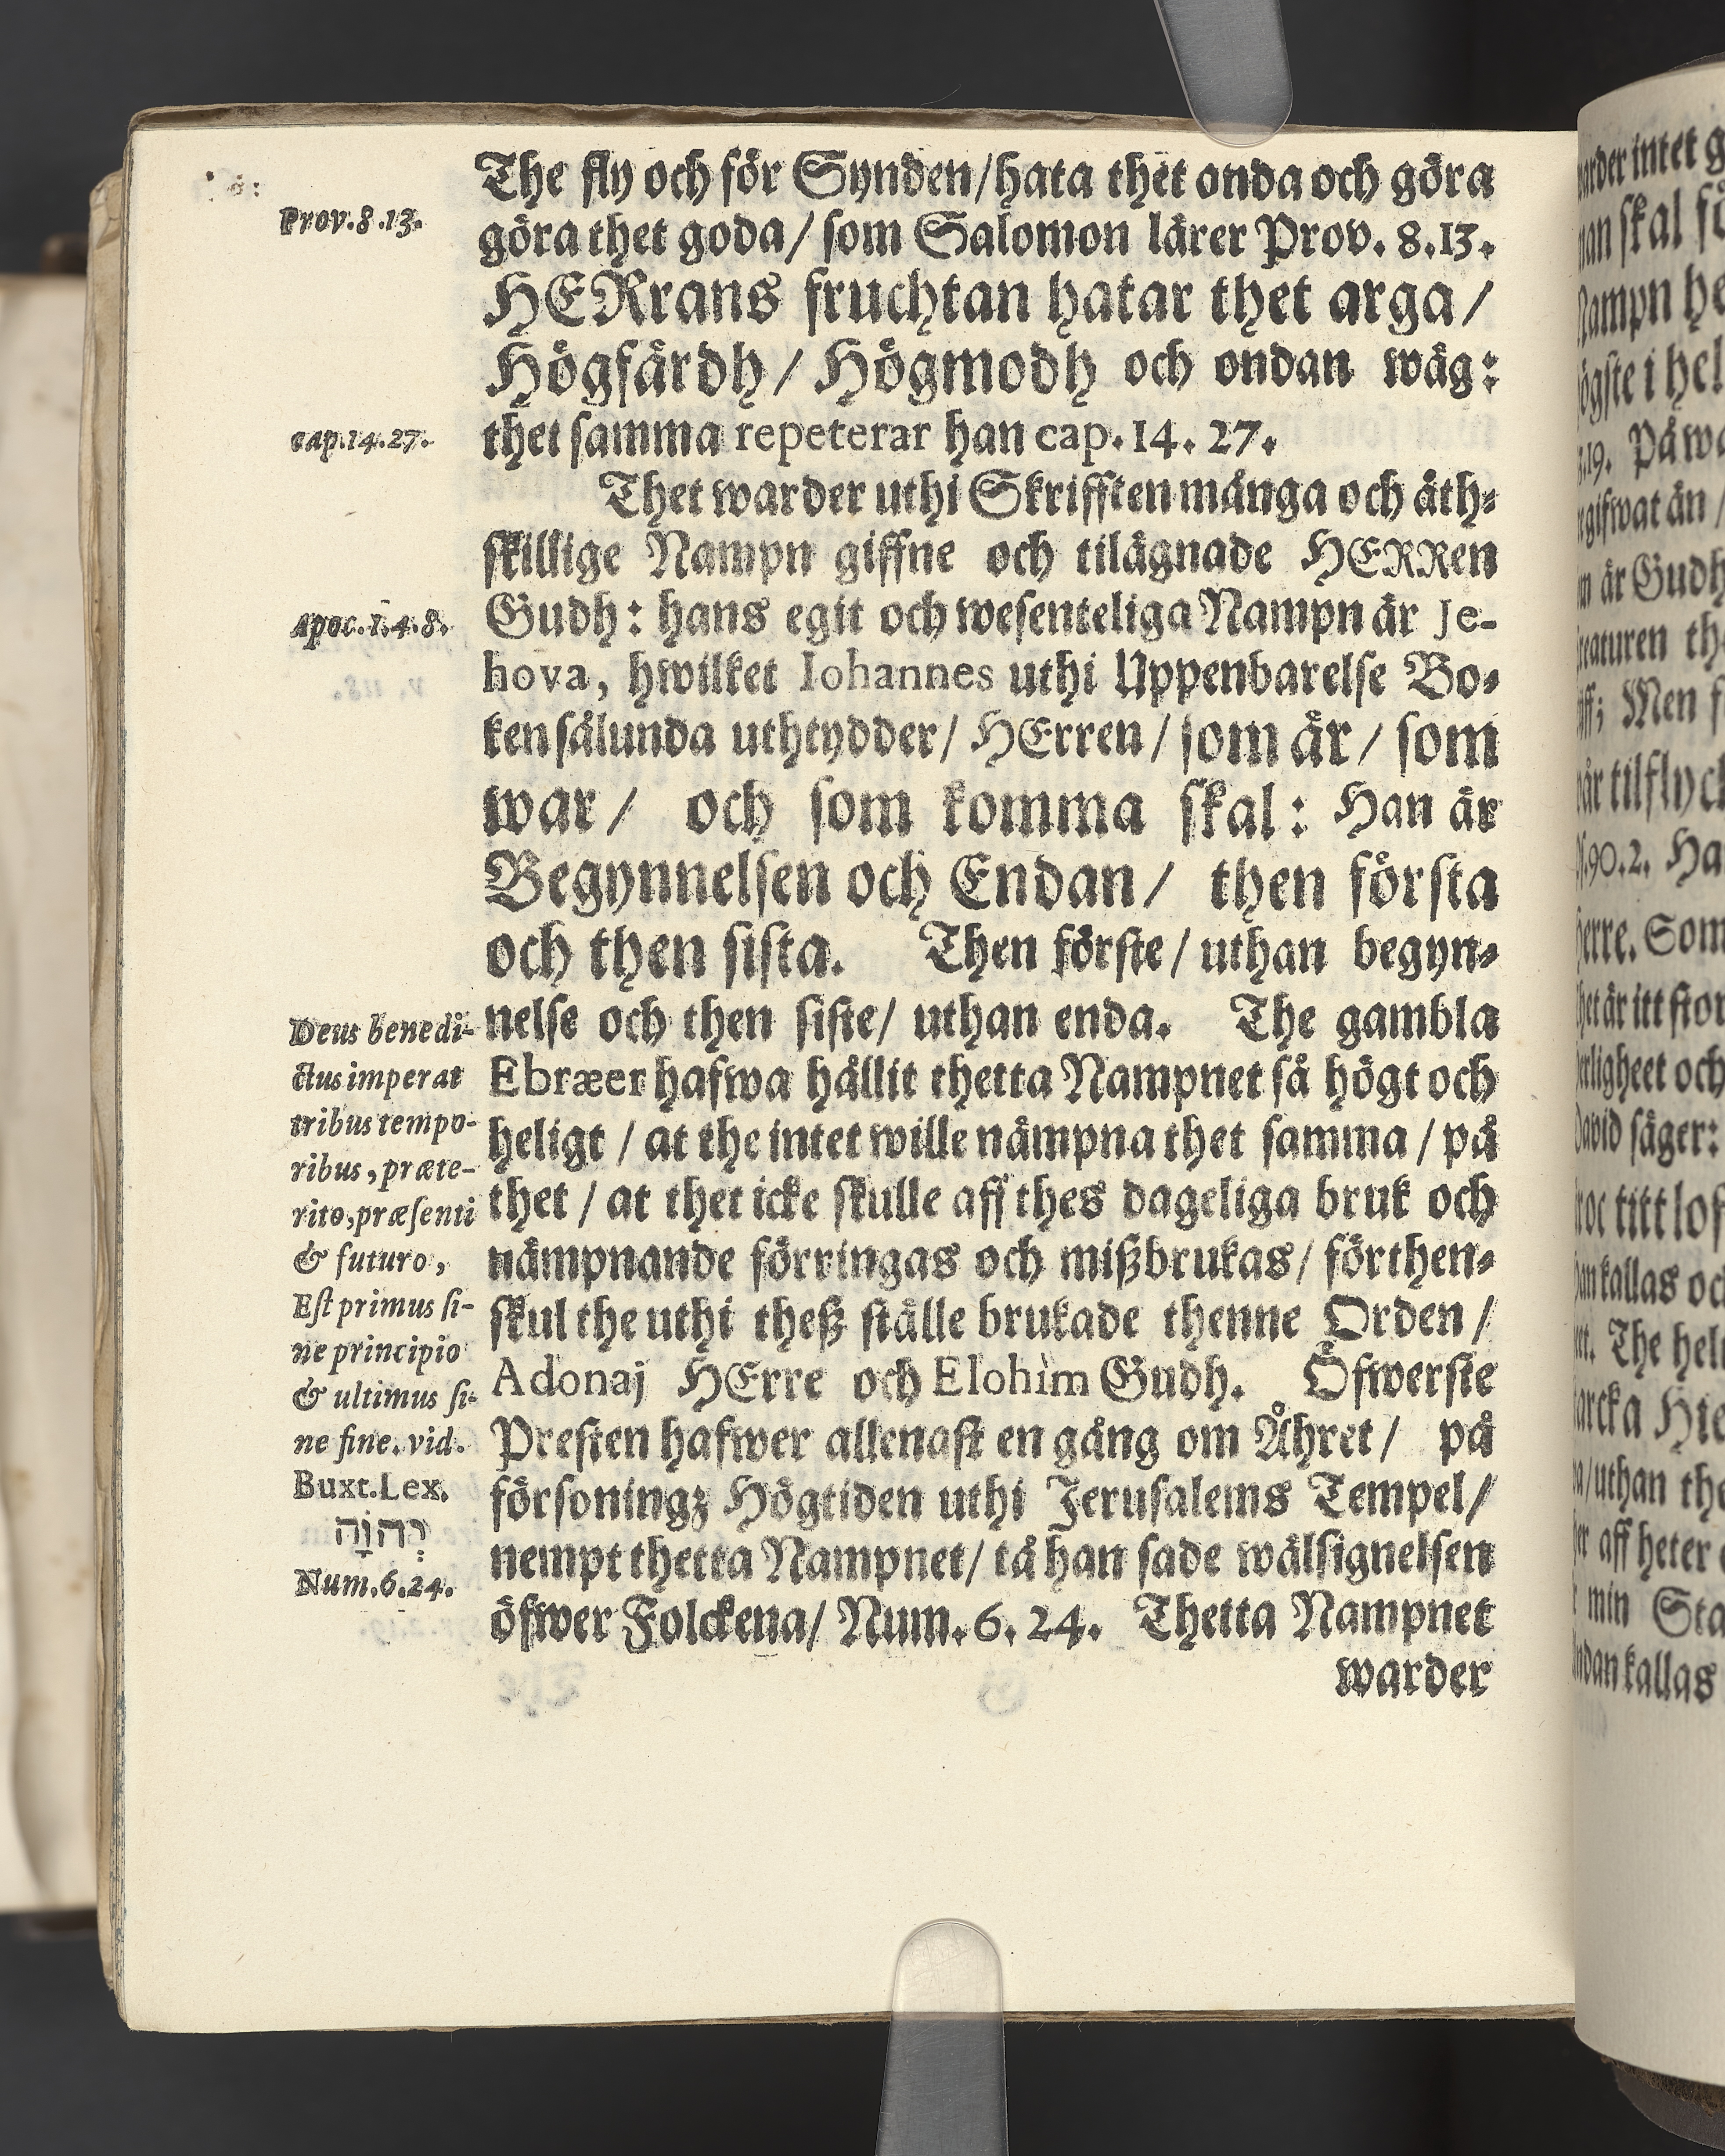 The fly och för Synden/hata thet onda och göra
Prov. 8.13.
göra thet goda/ som Salomon lärer Prov. 8.13.
HERrans fruchtan hatar thet arga/
Högfärdh/ Högmodh och ondan wäg:
cap.14.27.
thet samma repeterar han cap. 14. 27.
Thet warder uthi Skrifften många och åth-
skillige Nampn giffne och tilägnade HERRen
Apoc. 1.4.8.
Gudh: hans egit och wesenteliga Nampn är Je-
hova, hwilket Iohannes uthi Uppenbarelse Bo-
ken sålunda uthtydder/ HErren/ som är/ som
war/ och som komma skal: Han är
Begynnelsen och Endan/ then första
och then sista. Then förste/ uthan begyn-
nelse och then siste/ uthan enda. The gambla
Ebræer hafwa hållit thetta Nampnet så högt och
heligt / at the intet wille nämpna thet samma / på
thet / at thet icke skulle aff thes dageliga bruk och
nämpnande förringas och mißbrukas/ förthen-
skul the uthi theß ställe brukade thenne Orden /
Adonaj HErre och Elohim Gudh. Öfwerste
Presten hafwer allenast en gång om Åhret/ på
försoningz Högtiden uthi Jerusalems Tempel/
nempt thetta Nampnet/ tå han sade wälsignelsen
öfwer Folckena/ Num. 6. 24. Thetta Nampnet
warder
Deus benedi-
ctus imperat
tribus tempo-
ribus, præte-
rito, præsenti
& futuro,
Est primus si-
ne principio
& ultimus si-
ne fine. vid.
Buxt. Lex.
יְהוָֹה
Num. 6.24.